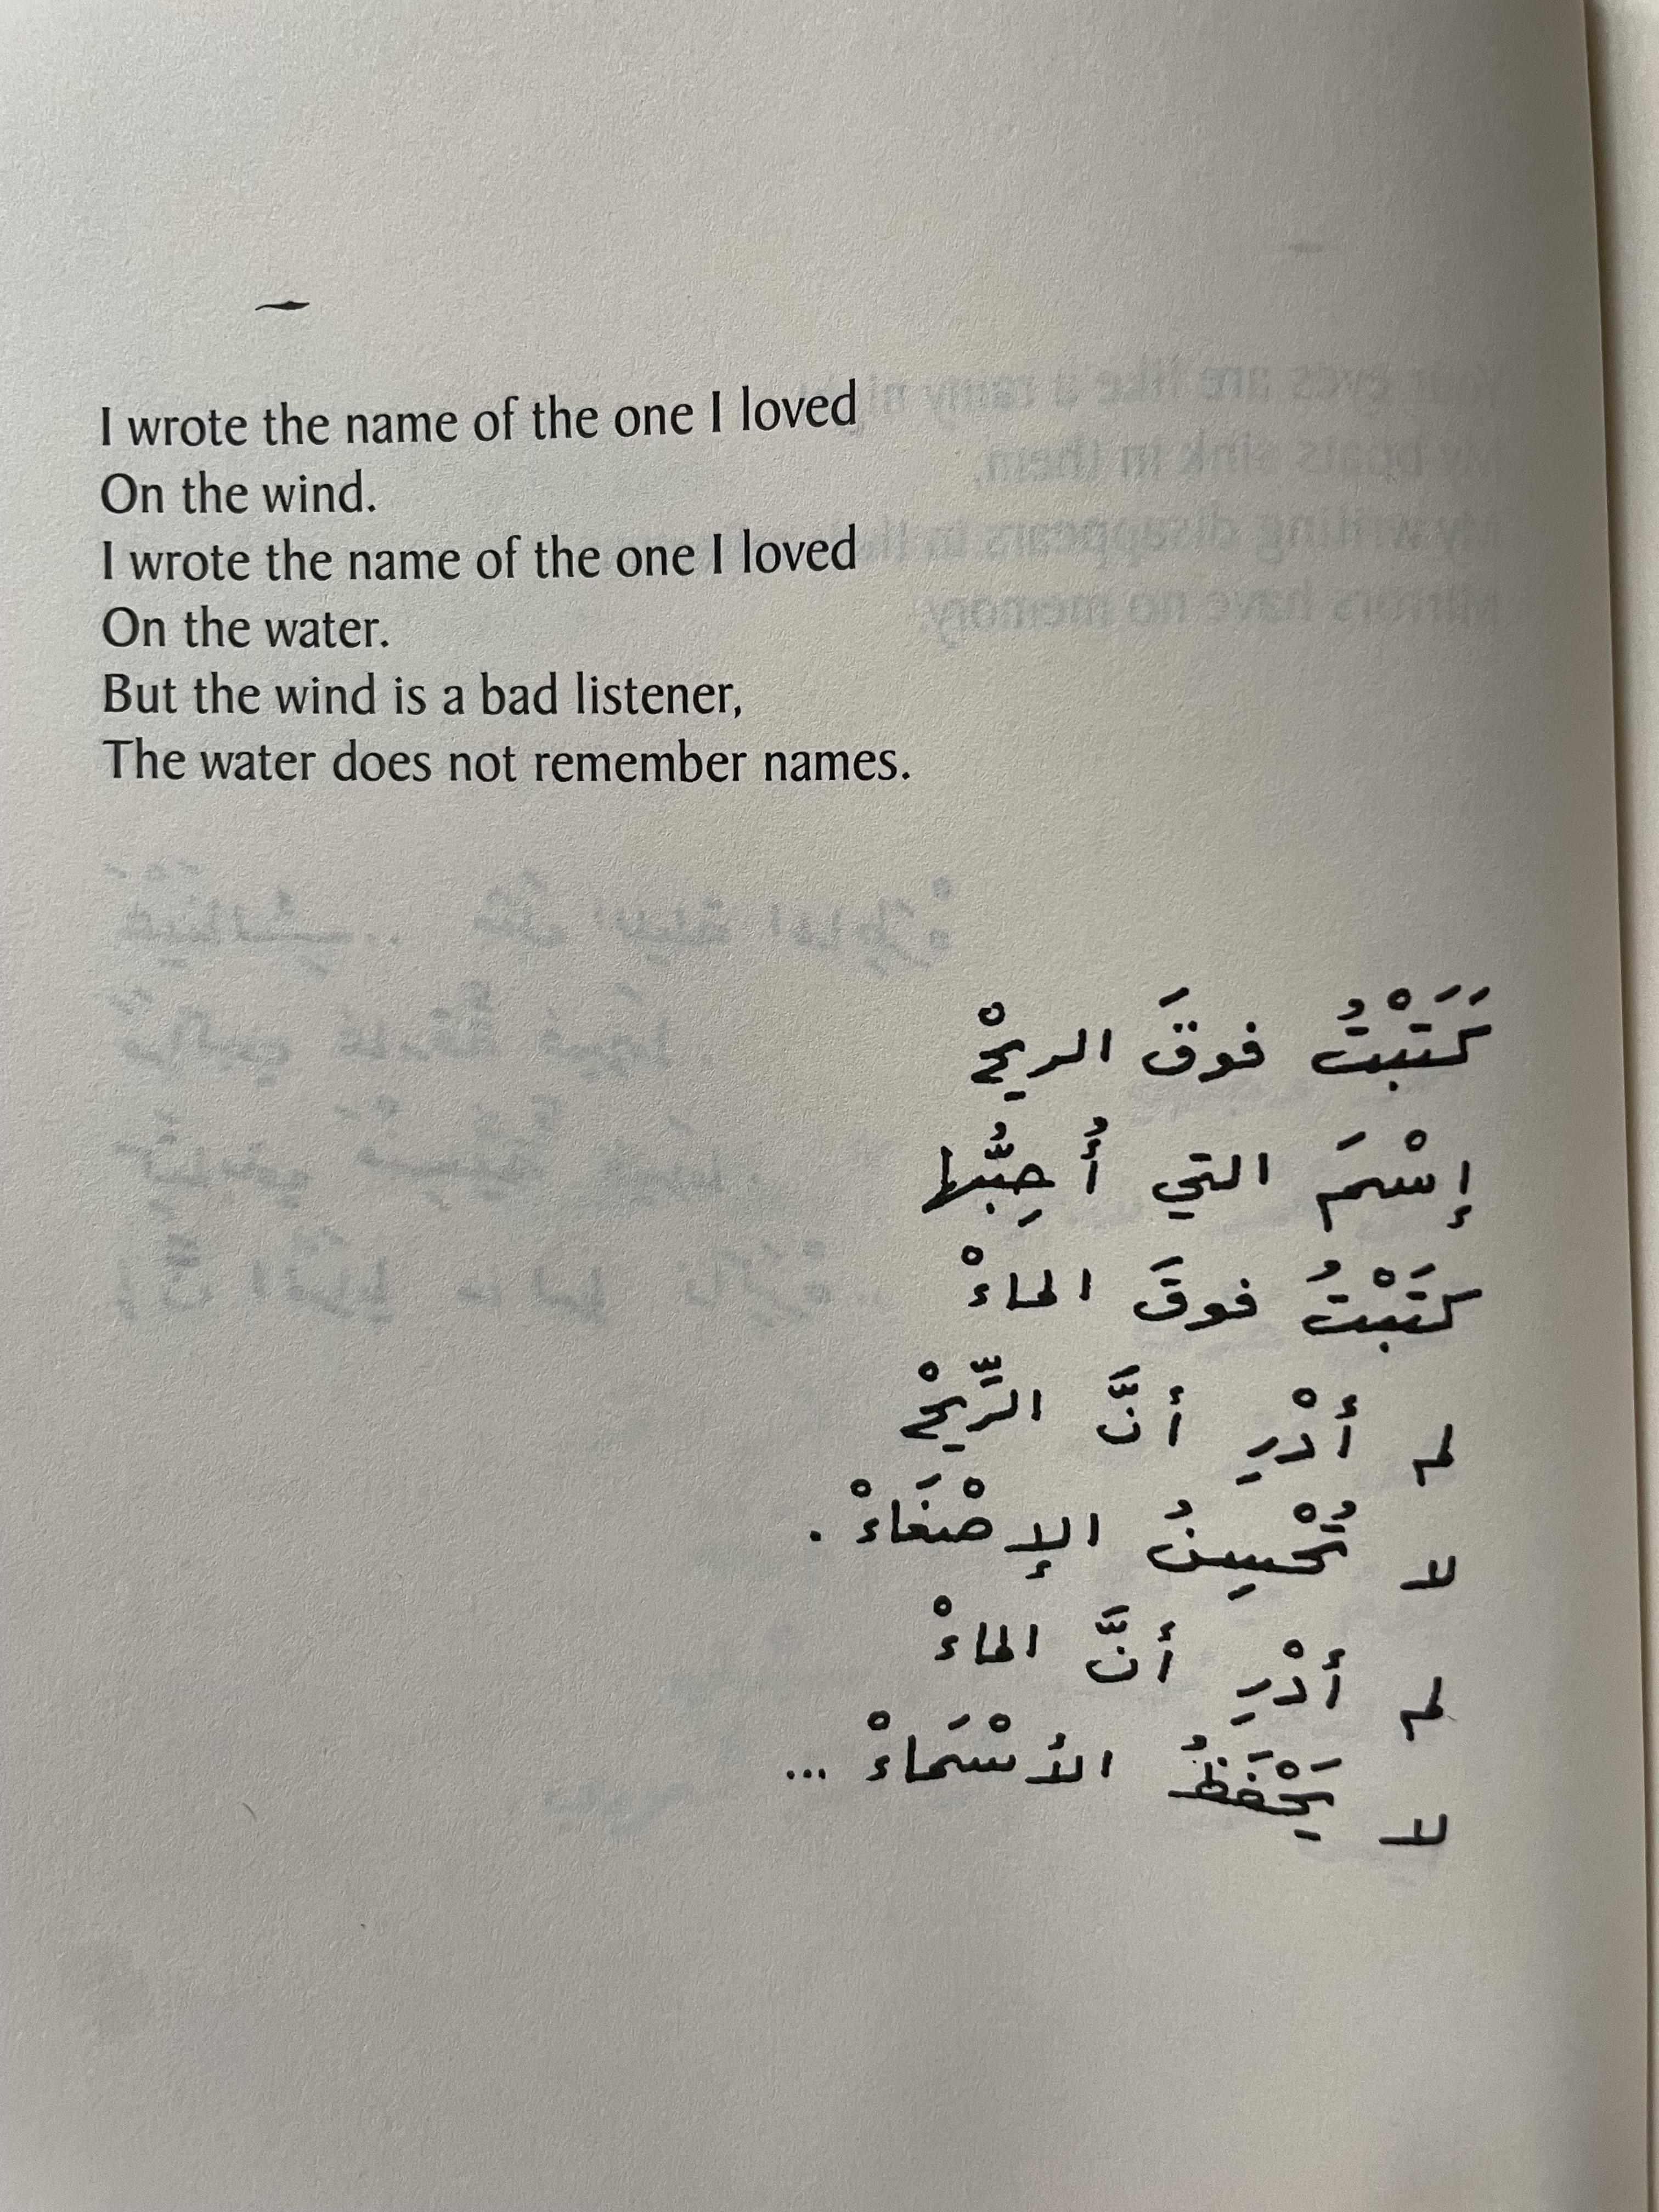 I wrote the name of the one I loved
On the wind.
I wrote the name of the one I loved
On the water.
But the wind is a bad listener,
The water does not remember names.
كَتَبْتُ فوقَ الريحْ
إسْمَ التي أُحِبُّها
كتَبْتُ فوقَ الماءْ
لم أدْرِ أنَّ الرِّيحْ
لا تُحْسِنُ الإصْغَاءْ.
لم أدْرِ أنَّ الماءْ
لا يَحْفَظُ الأسْمَاءْ...